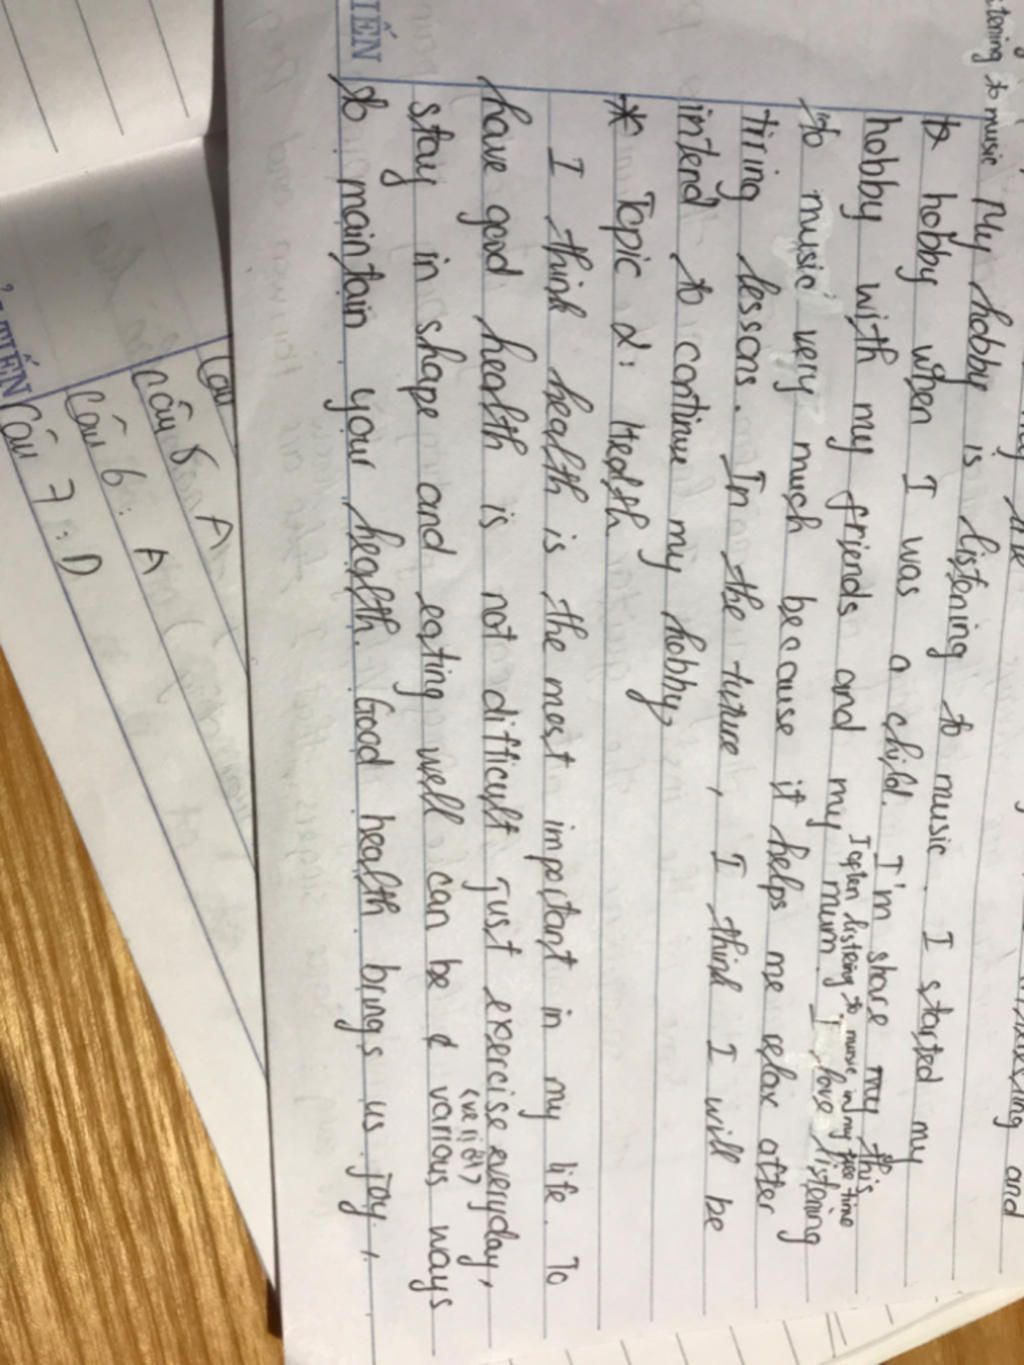 listening to music
My hobby is listening to music. I started my
hobby when I was a child. I'm share my this
hobby with my friends and my mum. I often listening to music in my free time
I love listening
to music very much because it helps me relax atter
tiring lessons. In the tuture, I think I will be
intend to continue my hobby,
* Topic 2: Health
I think health is the most important in my life. To
have good health is not difficult just exercise everyday,
stay in shape and eating well can be various ways
to maintain your health. Good health brings us joy,
TIẾN
Câu
Câu 5 A
Câu 6: A
Câu 7: D
TIẾN
and